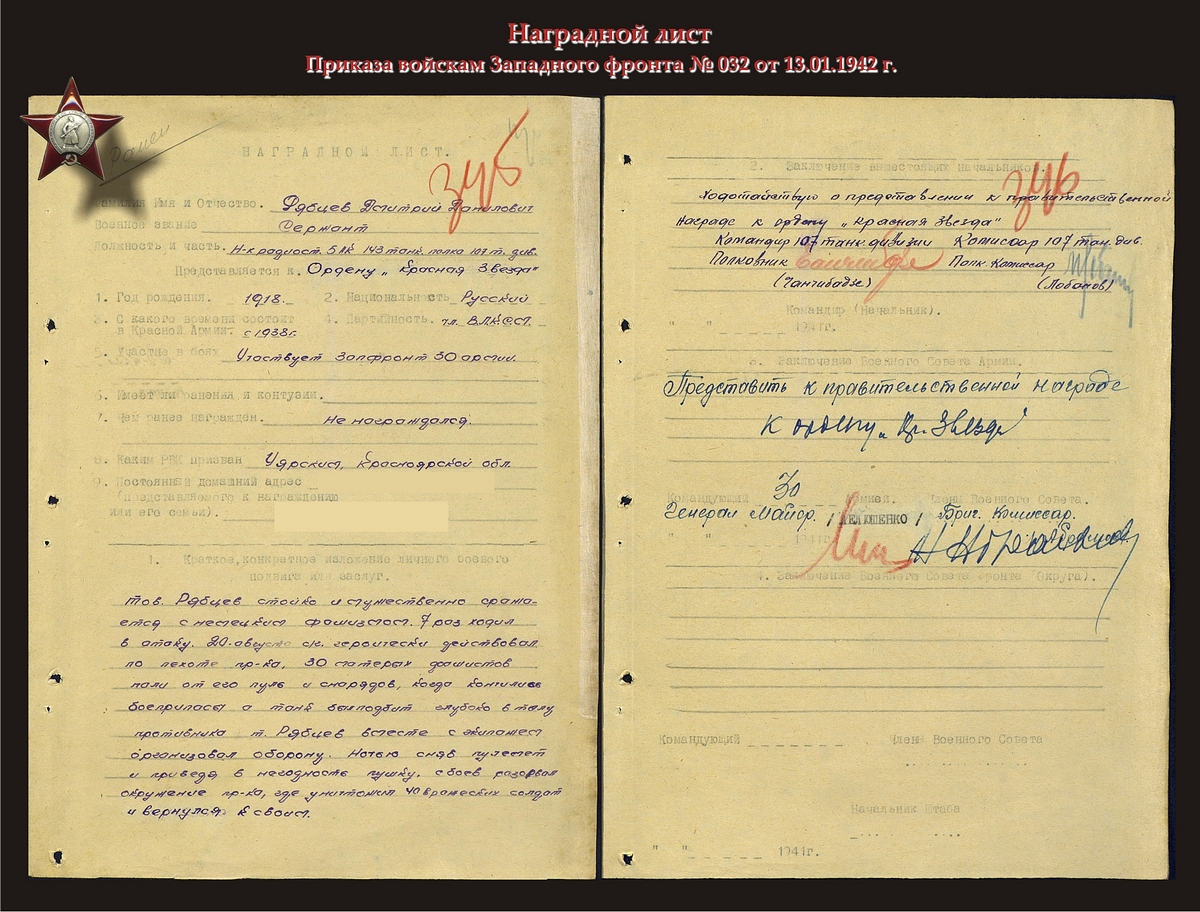 Наградной лист
Приказа войскам Западного фронта № 032 от 13.01.1942 г.
Ранен
НАГРАДНОЙ ЛИСТ.
Фамилия Имя и Отчество. Рябцев Дмитрий Данилович
Военное звание Сержант
Должность и часть. Н-к радиост. 5 лк 143 танк. полка 107 т. див.
Представляется к. Ордену „Красная Звезда"
1. Год рождения. 1918. 2. Национальность Русский
3. С какого времени состоит в Красной Армии. с 1938г. 4. Партийность. чл. ВЛКСМ.
5. Участие в боях Участвует Запфронт 30 армии.
6. Имеет ли ранения и контузии.
7. Чем ранее награжден. Не награждался.
8. Каким РВК призван Уярским, Красноярской обл.
9. Постоянный домашний адрес
(представляемого к награждению
или его семьи).
1. Краткое, конкретное изложение личного боевого
подвига или заслуг.
Тов. Рябцев стойко и мужественно сража-
ется с немецким фашизмом. 7 раз ходил
в атаку. 20-августа с.г. героически действовал
по пехоте пр-ка, 30 матерых фашистов
пали от его пуль и снарядов, когда кончились
боеприпасы а танк был подбит глубоко в тылу
противника т. Рябцев вместе с экипажем
организовал оборону. Ночью сняв пулемет
и приведя в негодность пушку, с боем разорвал
окружение пр-ка, где уничтожил 40 вражеских солдат
и вернулся к своим.
2. Заключение вышестоящих начальников.
Ходотайствую о предоставлении к правительственной
награде к ордену „Красная Звезда"
Командир 107 танк. дивизии Комиссар 107 тан. див.
Полковник Полк. Комиссар
(Чанчибадзе) (Лобанов)
Командир (Начальник).
" " 1941г.
3. Заключение Военного Совета Армии.
Представить к правительственной награде
к ордену „Кр. Звезда"
Командующий 30 Армией. Члены Военного Совета.
Генерал Майор. /ЛЕЛЮШЕНКО/ Бриг. Комиссар.
" " 1941г.
4. Заключение Военного Совета Фронта (Округа).
Командующий Член Военного Совета
Начальник Штаба
" " 1941г.